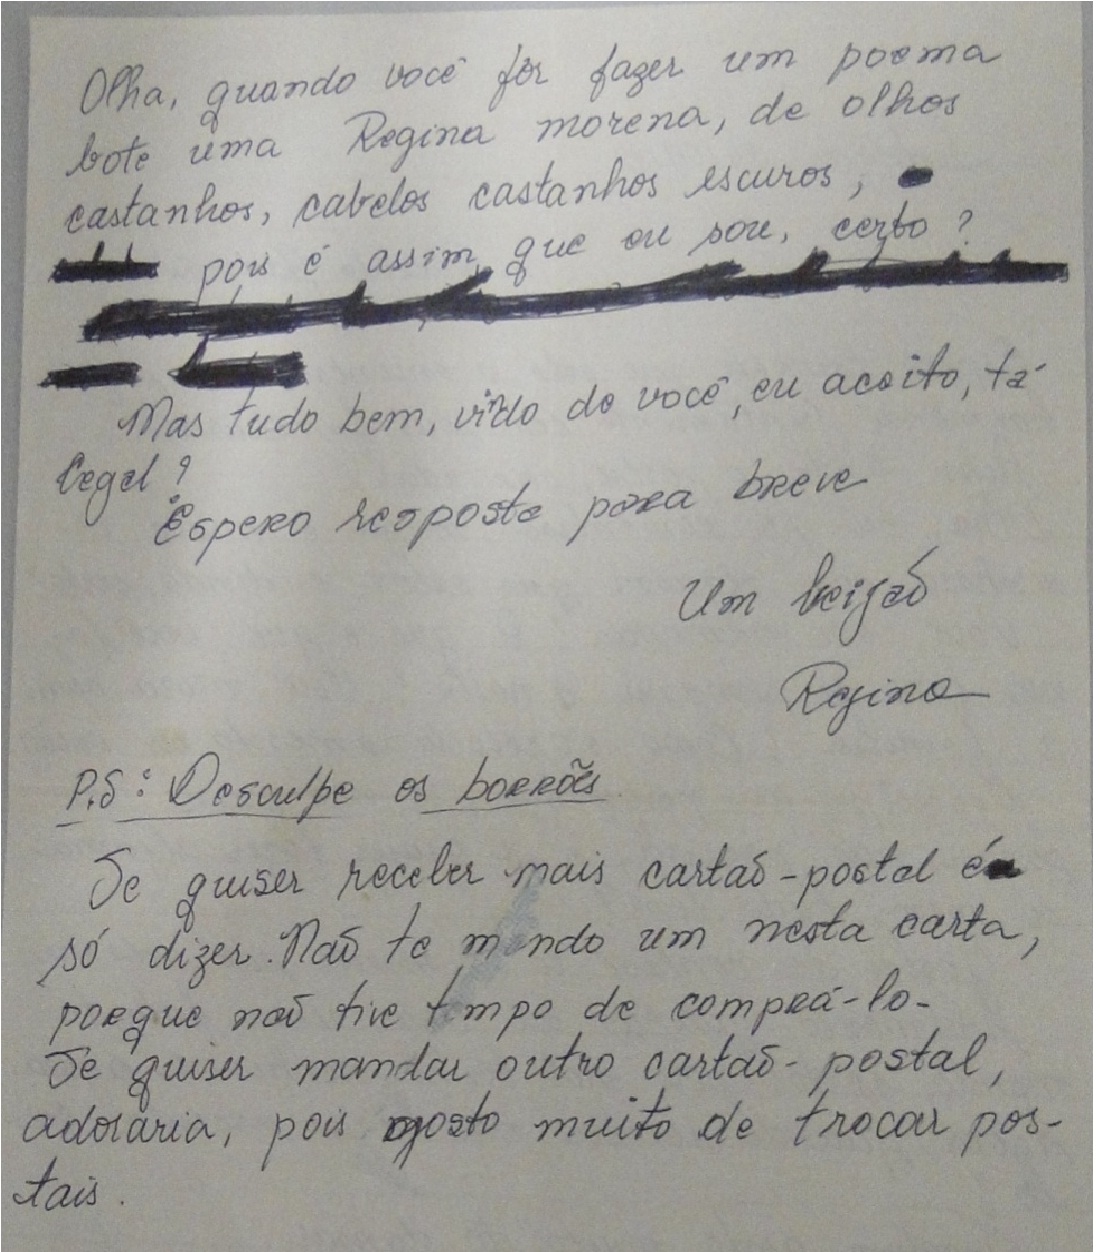 Olha, quando você fôr fazer um poema
bote uma Regina morena, de olhos
castanhos, cabelos castanhos escuros,
pois é assim que eu sou, certo?
Mas tudo bem, vindo de você, eu aceito, tá
legal?
Espero resposta para breve
Um beijão
Regina
P.S: Desculpe os borrões
Se quiser receber mais cartão-postal é
só dizer. Não te mando um nesta carta,
porque não tive tempo de comprá-lo.
Se quiser mandar outro cartão-postal,
adoraria, pois gosto muito de trocar pos-
tais.